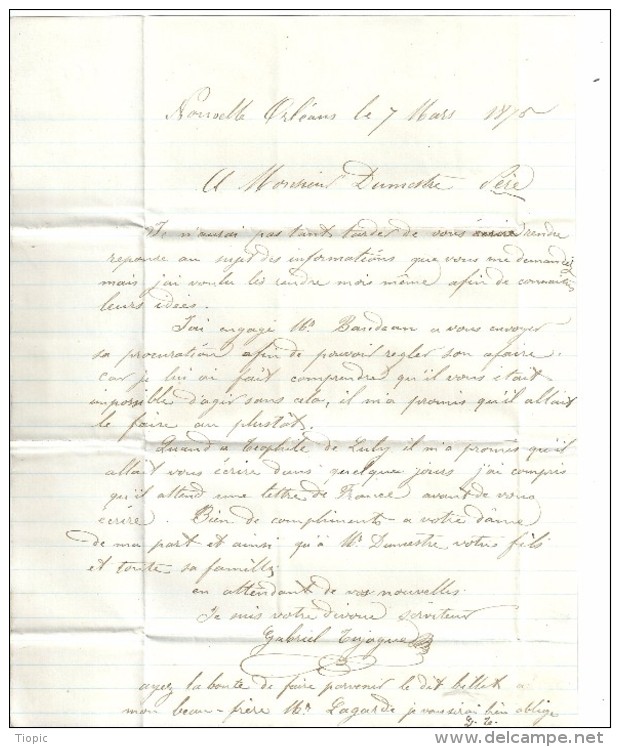 Nouvelle Orléans le 7 Mars 1875
A Monsieur Dumestre Père
Je n'aurai pas tant tardes de vous écrire rendre
reponse au sujet des informations que vous me demandez
mais j'ai voulu les rendre mois même afin de connaitre
leurs idées.
J'ai engagé Mr Baudean a vous envoyer
sa procuration afin de pouvoir regler son afaire.
Car je lui ai fait comprendre qu'il vous etait
impossible d'agir sans cela, il m'a promis qu'il allait
le faire au plustôt.
Quand a Teophile de Luby il m'a promis qu'il
allait vous ecrire dans quelques jours j'ai compris
qu'il attend une lettre de France avant de vous
ecrire. Bien de compliments a votre dame
de ma part et ainsi qu'à Mr Dumestre votre fils
et toute sa famille
en attendant de vos nouvelles
Je suis votre divoué serviteur
Gabriel
ayez la bonté de faire parvenir le dit billet a
mon beau-frère Mr Lagarde je vous serai bien oblige
Tiopic
delcampe.net